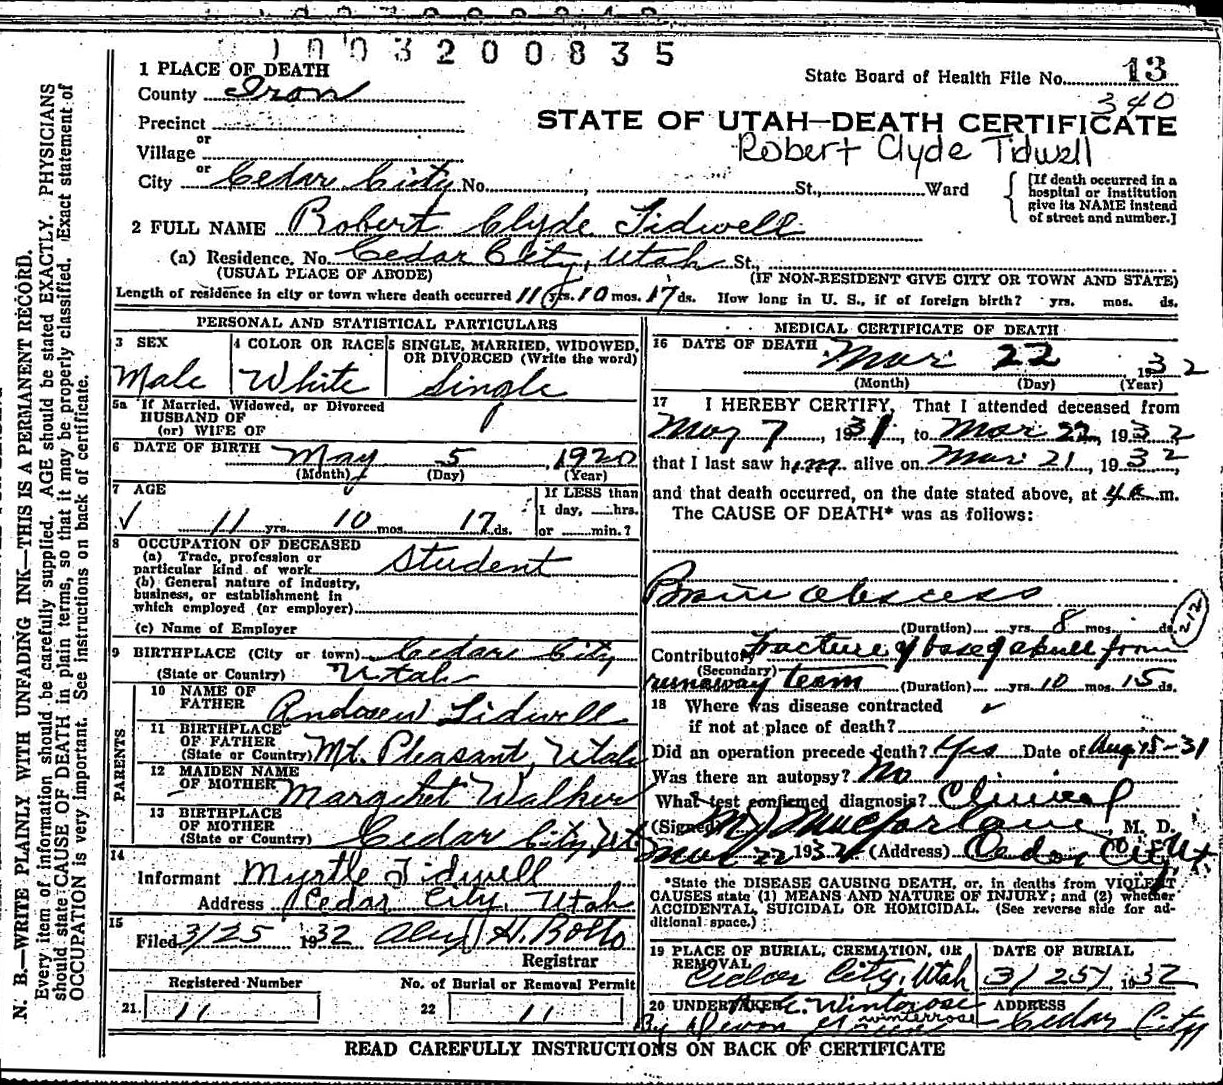 1003200835
1 PLACE OF DEATH
State Board of Health File No. 13
County Iron
340
Precinct
STATE OF UTAH—DEATH CERTIFICATE
or
Village
Robert Clyde Tidwell
or
City Cedar City No. , St., Ward
[If death occurred in a hospital or institution give its NAME instead of street and number.]
2 FULL NAME Robert Clyde Tidwell
(a) Residence. No. Cedar City, Utah St.,
(USUAL PLACE OF ABODE) (IF NON-RESIDENT GIVE CITY OR TOWN AND STATE)
Length of residence in city or town where death occurred 11 yrs. 10 mos. 17 ds. How long in U. S., if of foreign birth? yrs. mos. ds.
PERSONAL AND STATISTICAL PARTICULARS
3 SEX
Male
4 COLOR OR RACE
White
5 SINGLE, MARRIED, WIDOWED,
OR DIVORCED (Write the word)
Single
5a If Married, Widowed, or Divorced
HUSBAND OF
(or) WIFE OF
6 DATE OF BIRTH May 5, 1920
(Month) (Day) (Year)
7 AGE
If LESS than
1 day, hrs.
11 yrs. 10 mos. 17 ds. or min.?
8 OCCUPATION OF DECEASED
(a) Trade, profession or
particular kind of work Student
(b) General nature of industry,
business, or establishment in
which employed (or employer)
(c) Name of Employer
9 BIRTHPLACE (City or town) Cedar City
(State or Country) Utah
PARENTS
10 NAME OF
FATHER Andrew Tidwell
11 BIRTHPLACE
OF FATHER
(State or Country) Mt. Pleasant, Utah
12 MAIDEN NAME
OF MOTHER Margaret Walker
13 BIRTHPLACE
OF MOTHER
(State or Country) Cedar City, Ut
14
Informant Myrtle Tidwell
Address Cedar City, Utah
15
Filed 3/25 1932 H. Rollo
Registrar
Registered Number
21. 11
No. of Burial or Removal Permit
22 11
MEDICAL CERTIFICATE OF DEATH
16 DATE OF DEATH Mar 22 1932
(Month) (Day) (Year)
17 I HEREBY CERTIFY, That I attended deceased from
May 7, 1931, to Mar 22, 1932
that I last saw him alive on Mar 21, 1932,
and that death occurred, on the date stated above, at 4 a m.
The CAUSE OF DEATH* was as follows:
Brain abscess
(Duration) yrs. 8 mos. ds.
212
Contributory fracture of base of skull from
(Secondary)
runaway team (Duration) yrs. 10 mos. 15 ds.
18 Where was disease contracted
if not at place of death?
Did an operation precede death? Yes Date of Aug 15-31
Was there an autopsy? No
What test confirmed diagnosis? Clinical
(Signed) M J Macfarlane, M. D.
Mar 22 1932 (Address) Cedar City Ut
*State the DISEASE CAUSING DEATH, or, in deaths from VIOLENT
CAUSES state (1) MEANS AND NATURE OF INJURY; and (2) whether
ACCIDENTAL, SUICIDAL OR HOMICIDAL. (See reverse side for ad-
ditional space.)
19 PLACE OF BURIAL, CREMATION, OR
REMOVAL
Cedar City, Utah
DATE OF BURIAL
3/25/ 1932
20 UNDERTAKER Winterose
winterrose
By
ADDRESS
Cedar City
READ CAREFULLY INSTRUCTIONS ON BACK OF CERTIFICATE
N. B.—WRITE PLAINLY WITH UNFADING INK—THIS IS A PERMANENT RECORD.
Every item of information should be carefully supplied. AGE should be stated EXACTLY. PHYSICIANS
should state CAUSE OF DEATH in plain terms, so that it may be properly classified. Exact statement of
OCCUPATION is very important. See instructions on back of certificate.